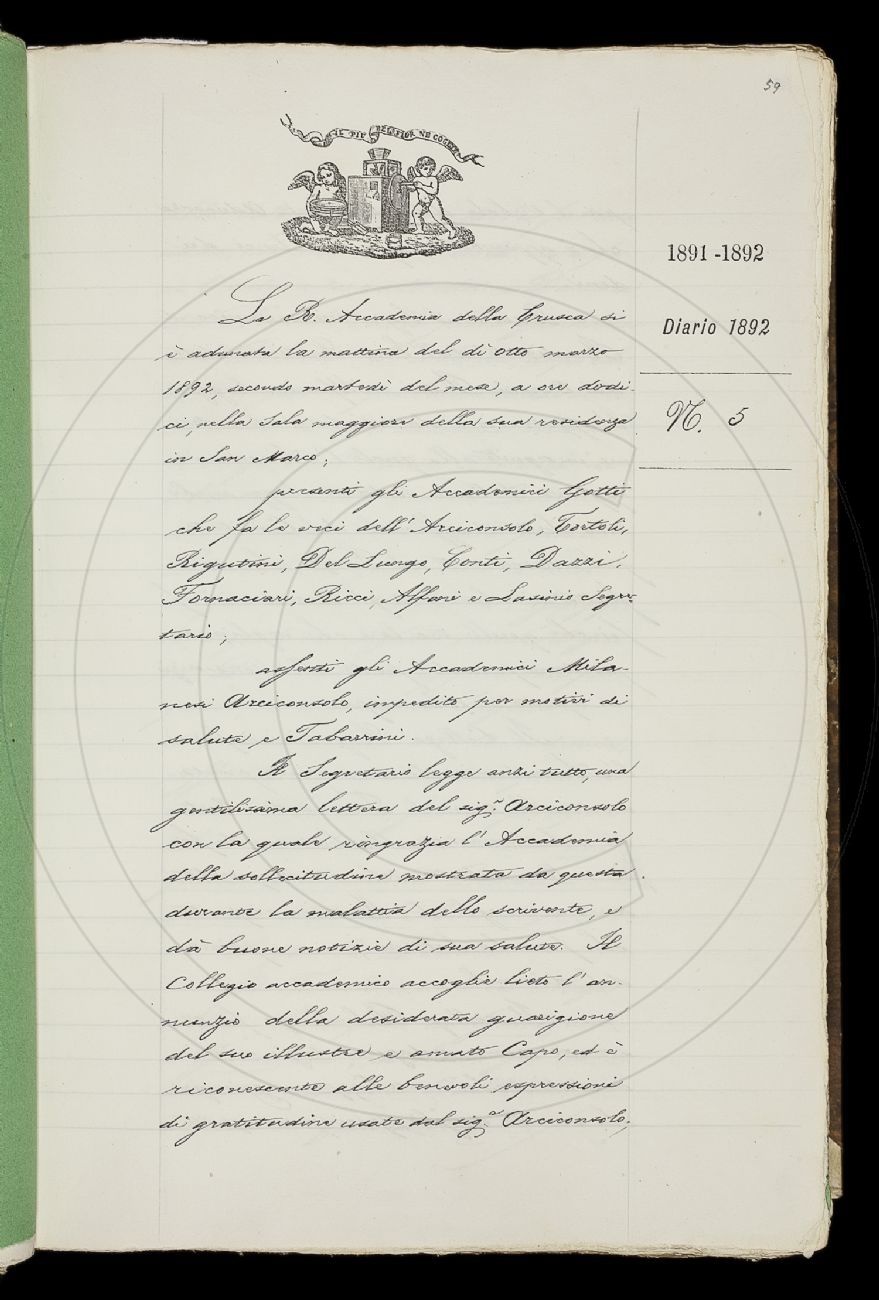 59
IL PIÙ BEL FIOR NE COGLIE
1891-1892
Diario 1892
N. 5
La R. Accademia della Crusca si
è adunata la mattina del dì otto marzo
1892, secondo martedì del mese, a ore dodi-
ci, nella Sala maggiore della sua residenza
in San Marco;
presenti gli Accademici Gotti
che fa le veci dell'Arciconsolo, Tortoli,
Rigutini, Del Lungo, Conti, Dazzi,
Fornaciari, Ricci, Alfani e Lasinio Segre-
tario;
assenti gli Accademici Mila-
nesi Arciconsolo, impedito per motivi di
salute e Tabarrini.
Il Segretario legge anzi tutto, una
gentilissima lettera del sig.r Arciconsolo
con la quale ringrazia l'Accademia
della sollecitudine mostrata da questa
durante la malattia dello scrivente, e
dà buone notizie di sua salute. Il
Collegio accademico accoglie lieto l'an-
nunzio della desiderata guarigione
del suo illustre e amato Capo, ed è
riconoscente alle benevoli espressioni
di gratitudine usate dal sig.r Arciconsolo,